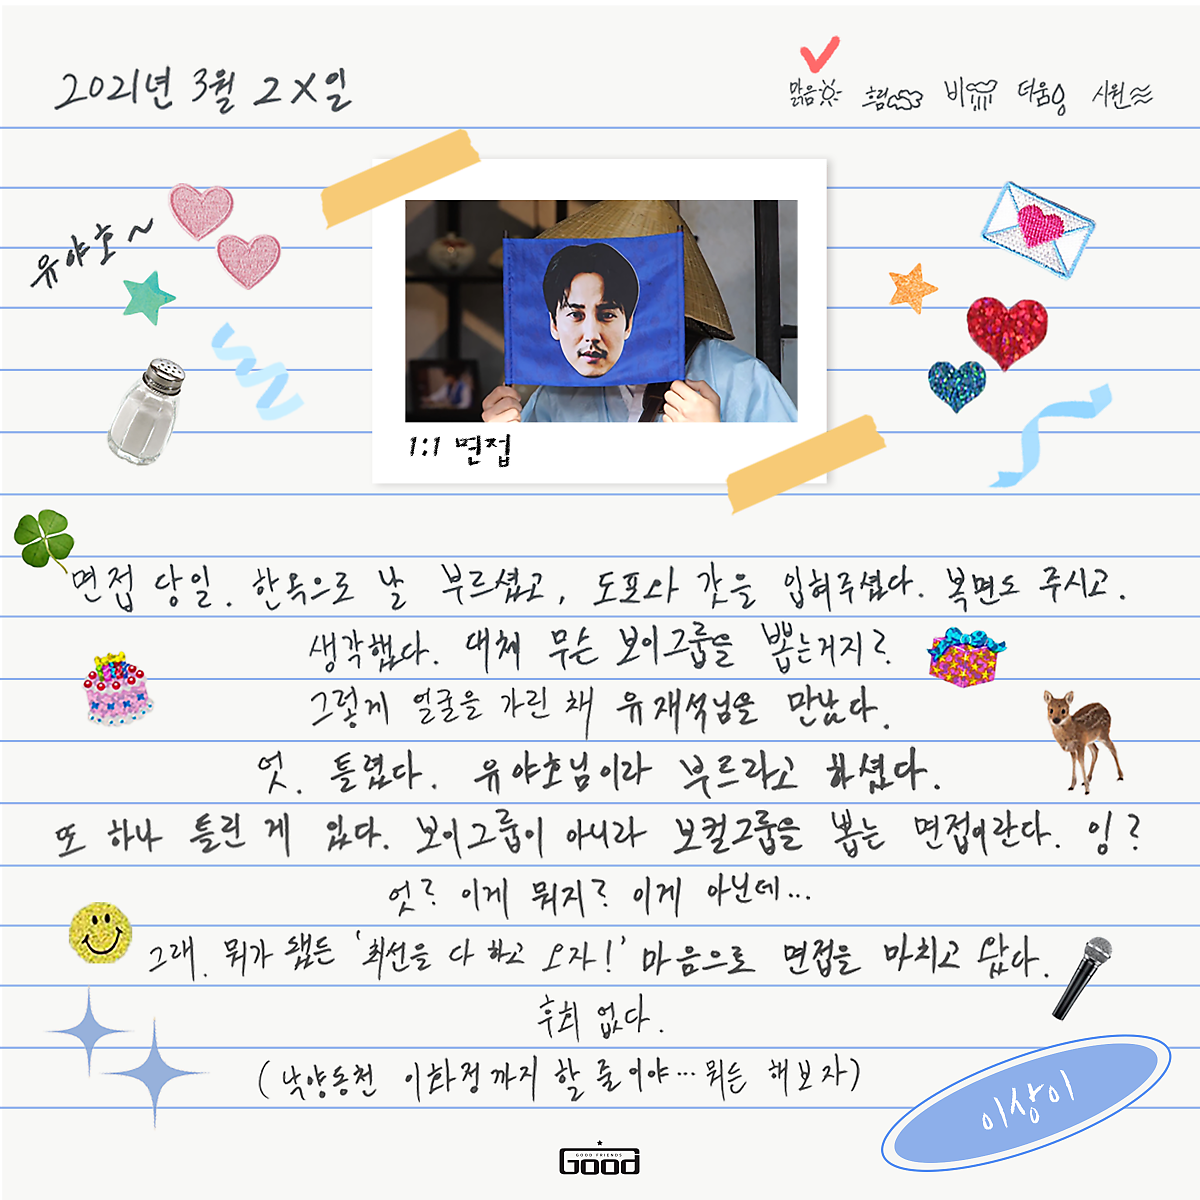 2021년 3월 2X일
맑음 흐림 비 더움 시원
유야호~
1:1 면접
면접 당일. 한옥으로 날 부르셨고, 도포와 갓을 입혀주셨다. 복면도 주시고.
생각했다. 대체 무슨 보이그룹을 뽑는거지?
그렇게 얼굴을 가린 채 유재석님을 만났다.
엇. 틀렸다. 유야호님이라 부르라고 하셨다.
또 하나 틀린 게 있다. 보이그룹이 아니라 보컬그룹을 뽑는 면접이란다. 잉?
엇? 이게 뭐지? 이게 아닌데...
그래. 뭐가 됐든 '최선을 다 하고 오자!' 마음으로 면접을 마치고 왔다.
후회 없다.
(낙양동천 이화정까지 할 줄이야... 뭐든 해보자)
이상이
GOOD FRIENDS
Good